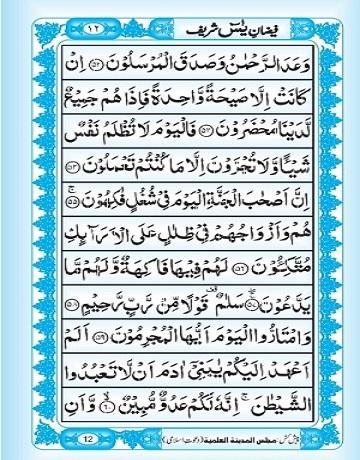 فیضانِ یٰسٓ شریف ١٢
وَعَدَ الرَّحْمٰنُ وَصَدَقَ الْمُرْسَلُوْنَ ﴿۵۲﴾ اِنْ
كَانَتْ اِلَّا صَيْحَةً وَّاحِدَةً فَاِذَا هُمْ جَمِيْعٌ
لَّدَيْنَا مُحْضَرُوْنَ ﴿۵۳﴾ فَالْيَوْمَ لَا تُظْلَمُ نَفْسٌ
شَيْـًٔا وَّلَا تُجْزَوْنَ اِلَّا مَا كُنْتُمْ تَعْمَلُوْنَ ﴿۵۴﴾
اِنَّ اَصْحٰبَ الْجَنَّةِ الْيَوْمَ فِيْ شُغُلٍ فٰكِهُوْنَ ﴿۵۵﴾
هُمْ وَاَزْوَاجُهُمْ فِيْ ظِلٰلٍ عَلَى الْاَرَآىِٕكِ
مُتَّكِـُٔوْنَ ﴿۵۶﴾ لَهُمْ فِيْهَا فَاكِهَةٌ وَّلَهُمْ مَّا
يَدَّعُوْنَ ﴿۵۷﴾ سَلٰمٌ قَوْلًا مِّنْ رَّبٍّ رَّحِيْمٍ ﴿۵۸﴾
وَامْتَازُوا الْيَوْمَ اَيُّهَا الْمُجْرِمُوْنَ ﴿۵۹﴾ اَلَمْ
اَعْهَدْ اِلَيْكُمْ يٰبَنِيْۤ اٰدَمَ اَنْ لَّا تَعْبُدُوا
الشَّيْطٰنَ ۚ اِنَّهٗ لَكُمْ عَدُوٌّ مُّبِيْنٌ ﴿۶۰﴾ وَّاَنِ
پیش کش: مجلس المدینة العلمیة (دعوتِ اسلامی) 12